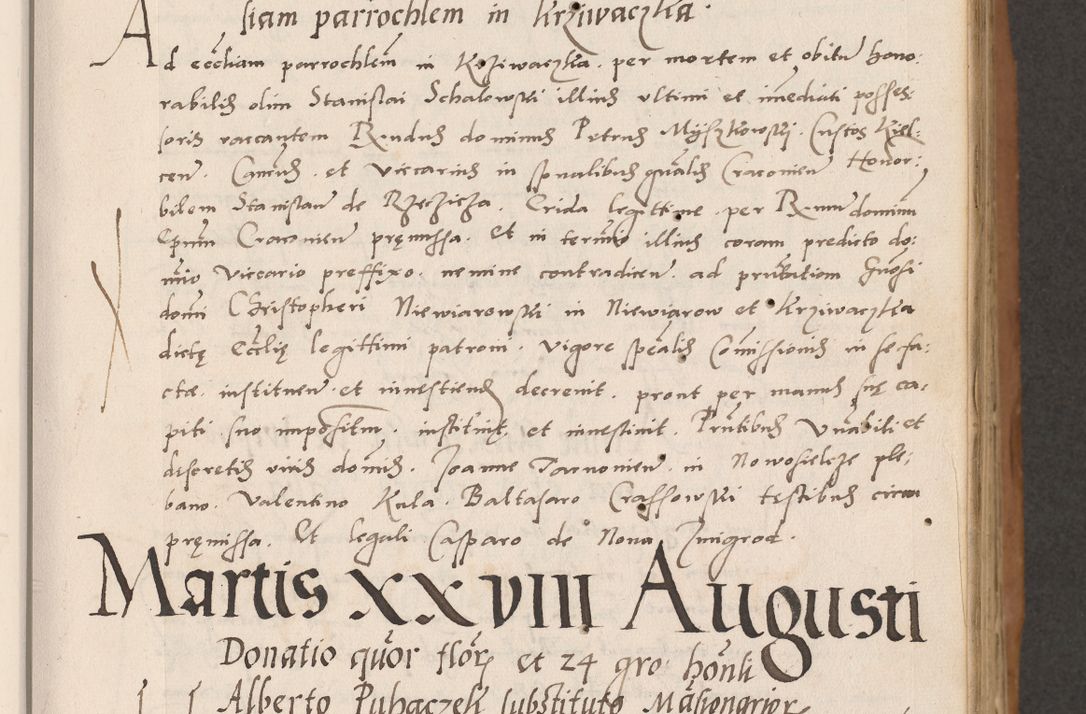 siam parrochlem in Krziwaczka.
Ad eccliam parrochlem in Krziwaczka. per mortem et obitu hono:
rabilis olim Stanislai Schalowski illius vltimi et imediati posses:
soris vaccantem Rndus dominus Petrus Myszkowski. Custos Kiel:
cen. Cancus. et viccarius in spualibus gnalis Cracovien Honor:
bilem Stanislau de Rzeczicza. Crida legittime. per Rmu dominu
Epum Cracovien premissa. Et in termio illius coram predicto do:
mio Viccario preffixo. nemine contradicen. ad pntatiom Gnosi
domi Christopheri Niewiarowski in Niewiarow et Krziwaczka
dicte Ecclie legittimi patroni. Vigore spealis Comissionis in se fa:
cte. instituen. et investiend decrevit. prout per manus sue ca:
piti suo impositm. instituit et investivit. Pntibus Vnabili et
discretis viris domis. Joanne Tarnovien. in Nowosielcze ple:
bano. Valentino Kula. Baltasaro Crassowski testibus circa
premissa. Et legali Casparo de Nova Zmigrod.
Martis XXVIII Augusti
Donatio quor flor et 24 gro honli
Alberto Puhaczeli substituto Masionarior